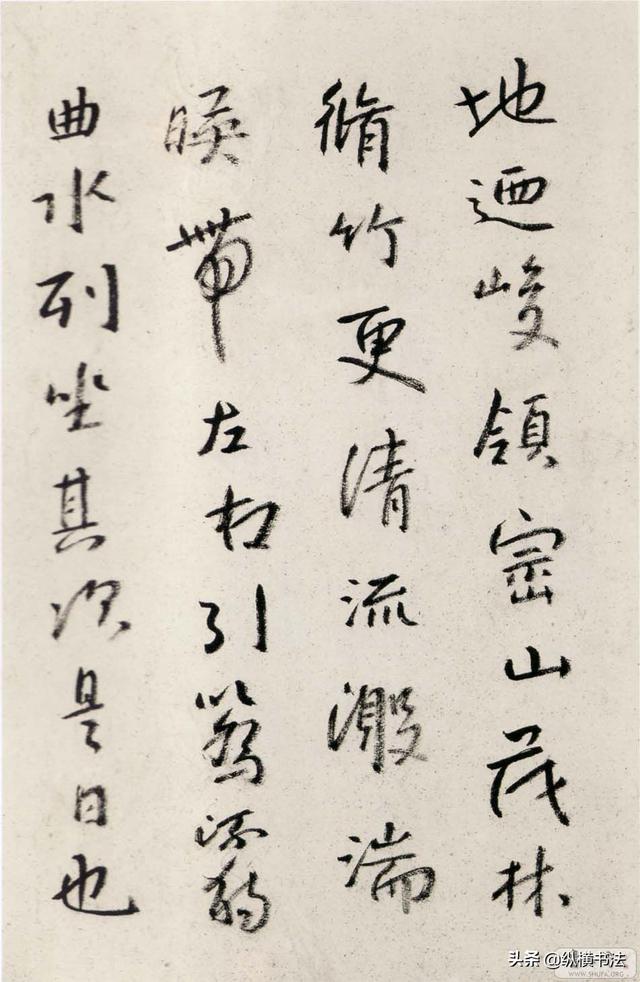 地迺峻領崇山茂林
脩竹更清流激湍
暎帶左右引以為流觴
曲水列坐其次是日也
头条 @纵横书法
WWW.SHUFA.ORG